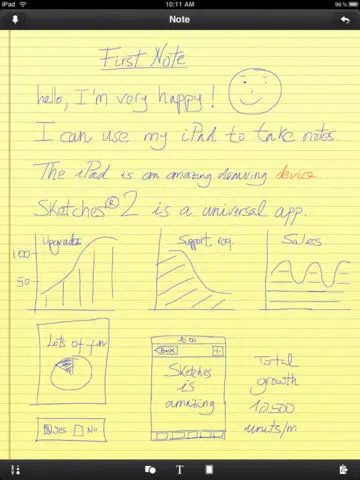 iPad
10:11 AM
96%
Note
First Note
hello, I'm very happy!
I can use my iPad to take notes.
The iPad is an amazing drawing device
Sketches® 2 is a universal app.
Upgrades
100
50
Support req.
Sales
Lots of fun
Yes No
Back +
Sketches
is
amazing
Total
growth
12500
units/m
T